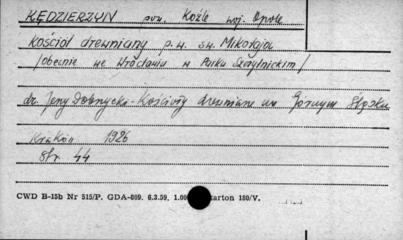 KĘDZIERZYN pow. Koźle woj. Opole
kościół drewniany p.w. św. Mikołaja
/obecnie we Wrocławiu w Parku Szczytnickim/
dr. Jerzy Dobrzycki - Kościoły drewniane na Górnym Śląsku
Kraków 1926
str. 44
CWD B-15b Nr 515/P. GDA-809. 6.3.59. 1.00 karton 180/V.